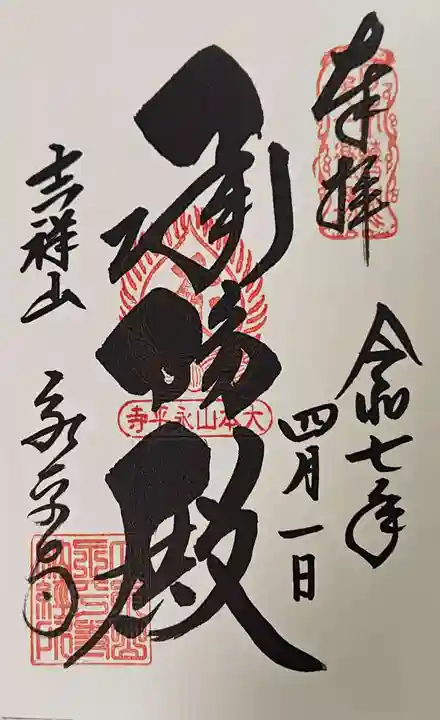 奉拝
令和七年
四月一日
承陽殿
大本山永平寺
吉祥山
永平寺